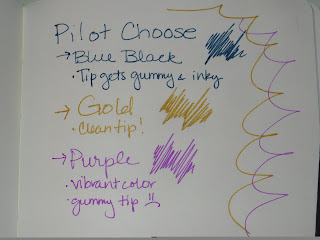 Pilot Choose
→ Blue Black
· Tip gets gummy & inky
→ Gold
· clean tip!
→ Purple
· vibrant color
· gummy tip